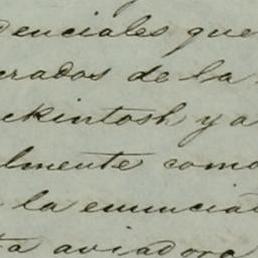 denciales que
erados de la
ckintosh y a
lmente como
la enuncia
ta aviadora